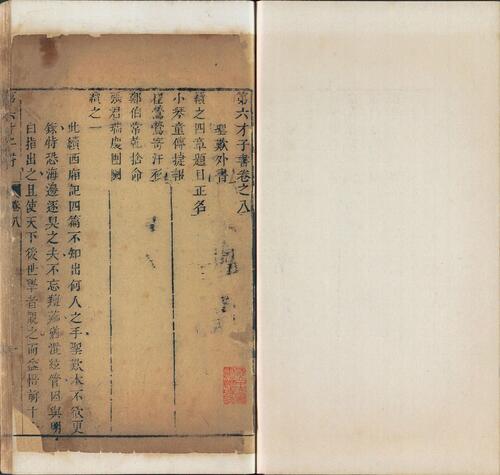 第六才子書卷之八
聖歎外書
續之四章題目正名
小琴童傳捷報
崔鶯鶯寄汗衫
鄭伯常乾捨命
張君瑞慶團圞
續之一
此續西廂記四篇不知出何人之手聖歎本不欲更
錄特恐海邊逐臭之夫不忘羶薌猶混絃管因與明
白指出之且使天下後世學者覩之而益悟前十
卷八